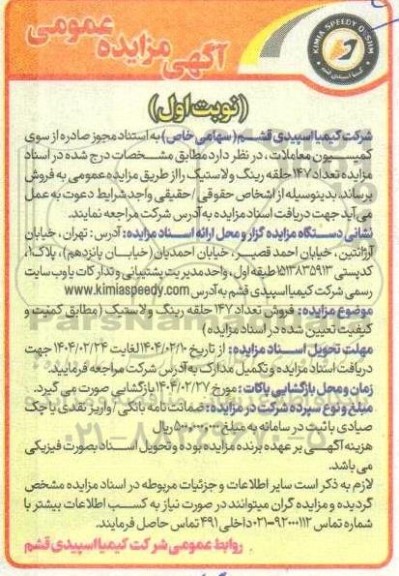 آگهی مزایده عمومی
KIMIA SPEEDY QESHM
کیمیا اسپیدی قشم
(نوبت اول)
شرکت کیمیا اسپیدی قشم (سهامی خاص) به استناد مجوز صادره از سوی
کمیسیون معاملات، در نظر دارد مطابق مشخصات درج شده در اسناد
مزایده تعداد ۱۴۷ حلقه رینگ ولاستیک را از طریق مزایده عمومی به فروش
برساند، بدینوسیله از اشخاص حقوقی / حقیقی واجد شرایط دعوت به عمل
می آید جهت دریافت اسناد مزایده به آدرس شرکت مراجعه نمایند.
نشانی دستگاه مزایده گزار و محل ارائه اسناد مزایده: آدرس: تهران، خیابان
آرژانتین، خیابان احمد قصیر، خیابان احمدیان (خیابان پانزدهم)، پلاک۱،
کدپستی ۱۵۱۳۸۳۵۹۱۳ طبقه اول، واحد مدیریت پشتیبانی و تدارکات یا وب سایت
رسمی شرکت کیمیا اسپیدی قشم به آدرس www.kimiaspeedy.com
موضوع مزایده: فروش تعداد ۱۴۷ حلقه رینگ و لاستیک (مطابق کمیت و
کیفیت تعیین شده در اسناد مزایده)
مهلت تحویل اسناد مزایده: از تاریخ ۱۴۰۴/۰۲/۱۰ لغایت ۱۴۰۴/۰۲/۲۴ جهت
دریافت اسناد مزایده و تکمیل مدارک به آدرس شرکت مراجعه فرمایید.
زمان و محل بازگشایی پاکات: مورخ ۱۴۰۴/۰۲/۲۷ بازگشایی صورت می گیرد.
مبلغ و نوع سپرده شرکت در مزایده: ضمانت نامه بانکی / واریز نقدی یا چک
صیادی با ثبت در سامانه به مبلغ ۵۰۰،۰۰۰،۰۰۰ ریال
هزینه آگهی بر عهده برنده مزایده بوده و تحویل اسناد بصورت فیزیکی
می باشد.
لازم به ذکر است سایر اطلاعات و جزئیات مربوطه در اسناد مزایده مشخص
گردیده و مزایده گران میتوانند در صورت نیاز به کسب اطلاعات بیشتر با
شماره تماس ۹۲۰۰۰۱۱۲-۰۲۱ داخلی ۴۹۱ تماس حاصل فرمایند.
روابط عمومی شرکت کیمیا اسپیدی قشم